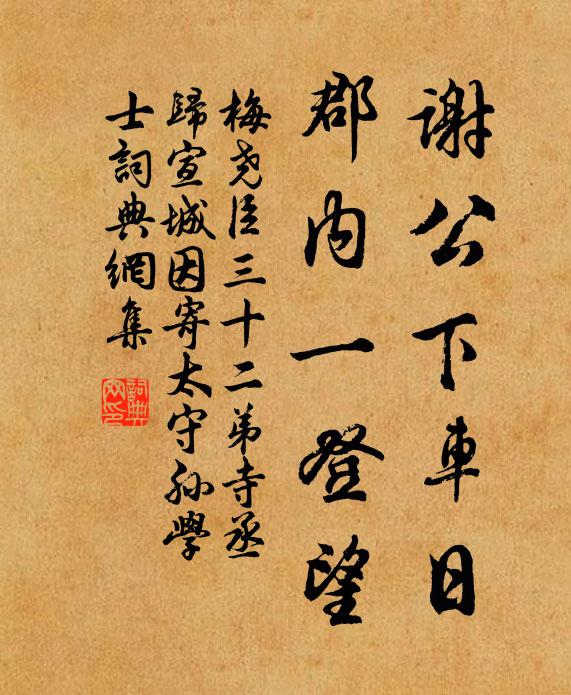 謝公下車日
郡內一登望
梅堯臣三十二弟寺丞
歸宣城因寄太守孫學
士詞典網集
詞典網印